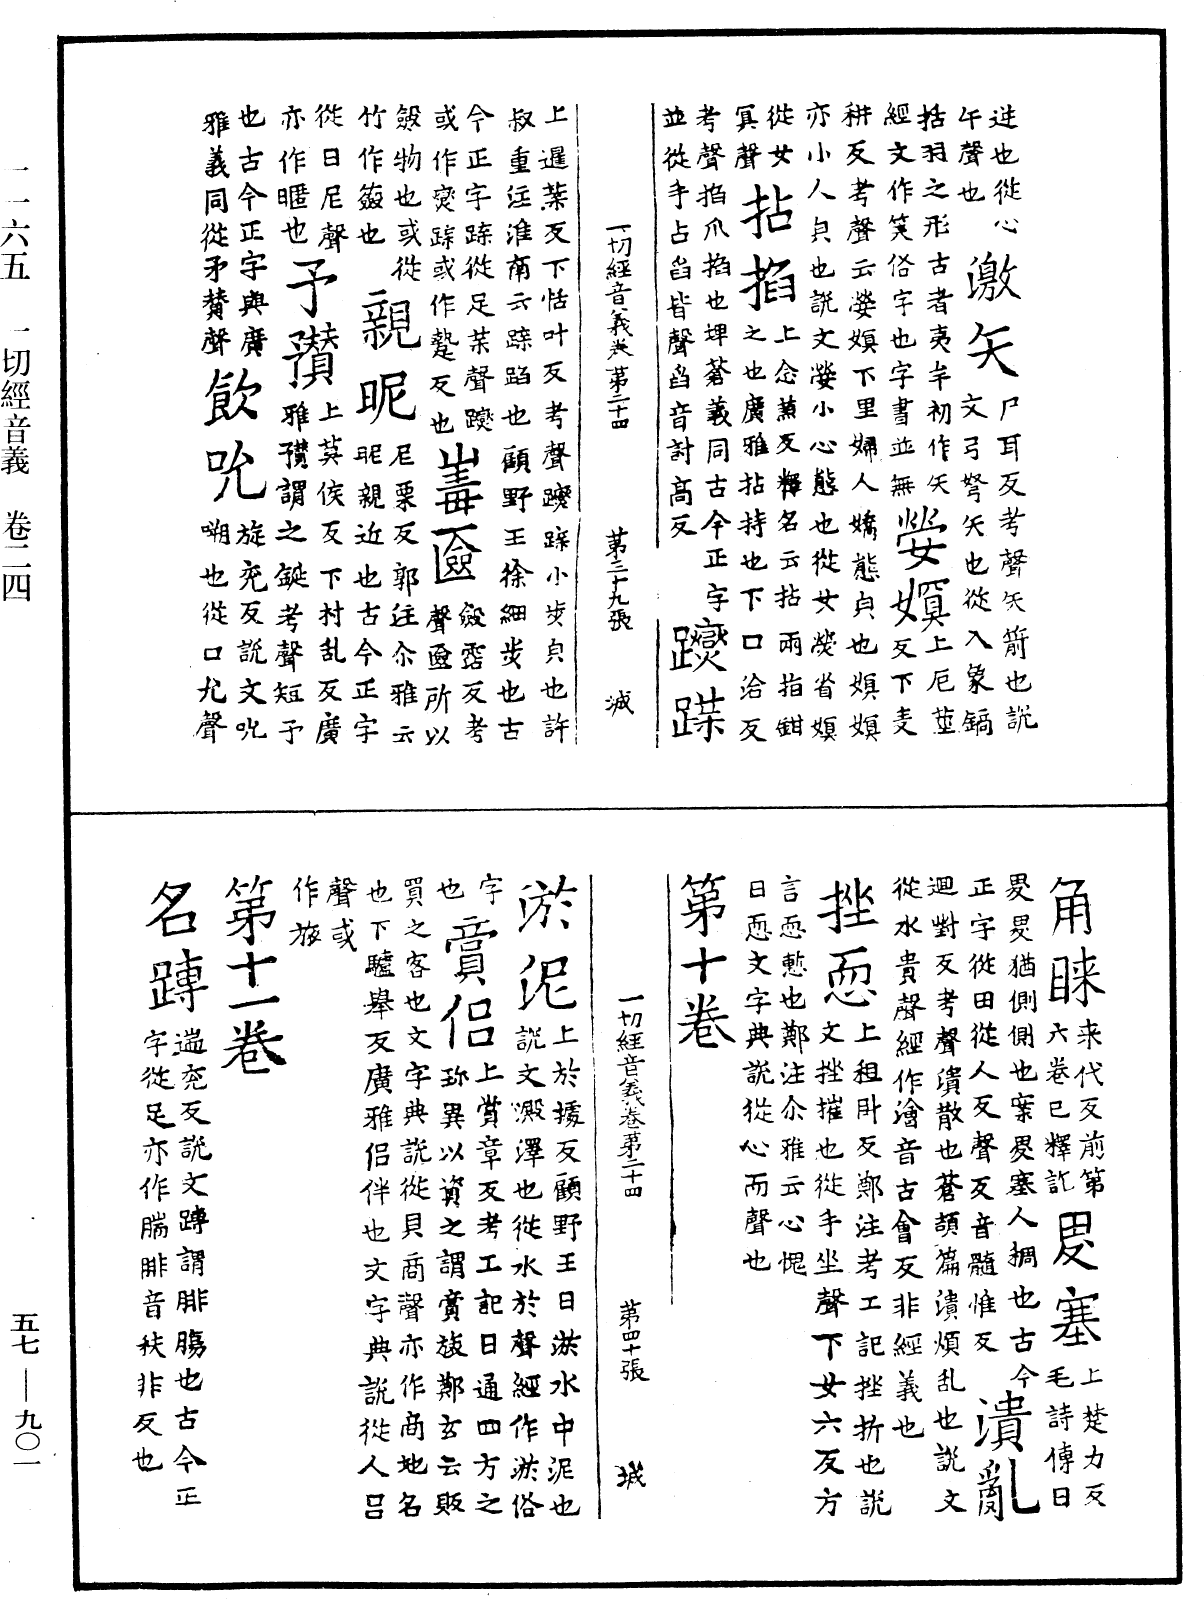 迕也從心
午聲也
激矢
尸耳反考聲矢箭也說
文弓弩矢也從入象鏑
括羽之形古者夷牟初作矢
經文作笶俗字也字書並無
嫈嫇
上厄莖
反下麦
耕反考聲云嫈嫇下里婦人嬌態皃也嫇嫇
亦小人皃也說文嫈小心態也從女熒省嫇
從女
冥聲
拈掐
上念蒹反釋名云拈兩指鉗
之也廣雅拈持也下口洽反
考聲掐爪掐也埤蒼義同古今正字
並從手占臽皆聲臽音討高反
躞蹀
一切經音義卷第二十四　第三十九張　城
上暹葉反下恬叶反考聲躞蹀小步皃也許
叔重注淮南云蹀蹈也顧野王徐細步也古
今正字蹀從足枼聲躞
或作㷸蹀或作蹔反也
毒匳
斂霑反考
聲匳所以
斂物也或從
竹作籢也
親昵
尼栗反郭注尒雅云
昵親近也古今正字
從日尼聲
亦作暱也
矛䂎
上莫侯反下村乱反廣
雅䂎謂之鋋考聲短矛
也古今正字與廣
雅義同從矛贊聲
飲吮
旋兖反說文吮
嗍也從口允聲
角睞
来代反前第
六卷已釋訖
畟塞
上楚力反
毛詩傳曰
畟畟猶側側也案畟塞人稠也古今
正字從田從人夊聲夊音髓惟反
潰亂
迴對反考聲潰散也蒼頡篇潰煩乱也說文
從水貴聲經作澮音古會反非經義也
挫恧
上租卧反鄭注考工記挫折也說
文挫摧也從手坐聲下女六反方
言恧慙也鄭注尒雅云心愧
曰恧文字典說從心而聲也
第十卷
一切經音義卷第二十四　第四十張　城
淤泥
上於據反顧野王曰淤水中泥也
說文澱滓也從水於聲經作淤俗
字
也
賫侣
上賞章反考工記曰通四方之
珎異以資之謂賫旅鄭玄云販
買之客也文字典說從貝商聲亦作商地名
也下驢舉反廣雅侣伴也文字典說從人吕
聲或
作旅
第十一卷
名蹲
遄兖反說文蹲謂腓腸也古今正
字從足亦作腨腓音秩非反也
一一六五　一切經音義　卷二四
五七——九〇一